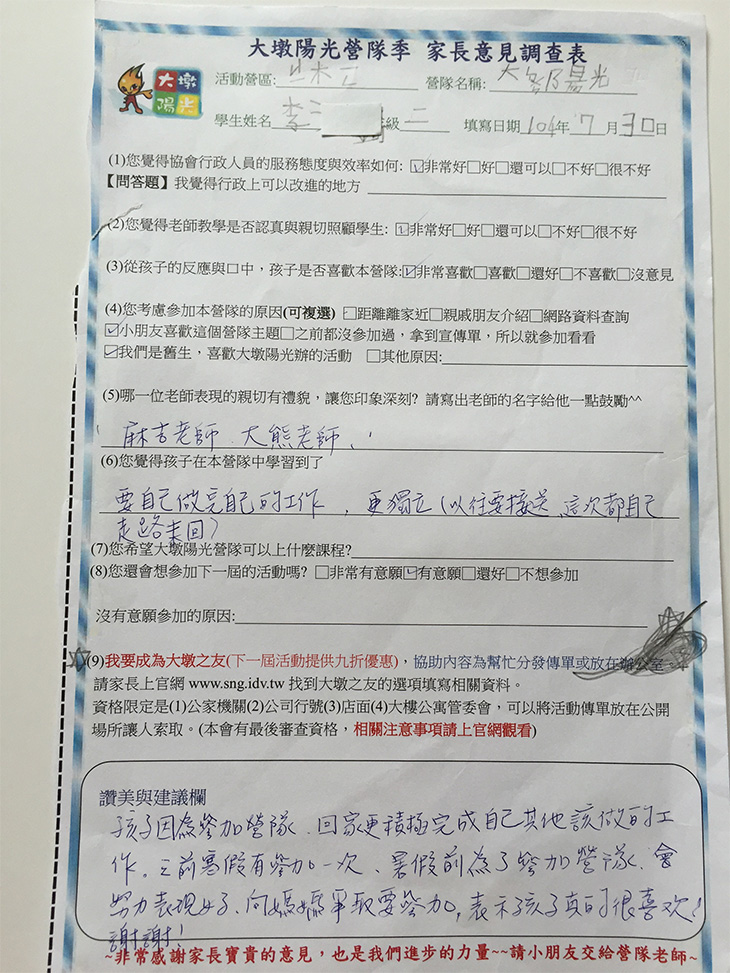 大墩陽光營隊季 家長意見調查表
大墩
陽光
活動營區: 營隊名稱: 大 陽光
學生姓名 李 級 二 填寫日期 104年 7 月 30日
(1)您覺得協會行政人員的服務態度與效率如何: ☑非常好□好□還可以□不好□很不好
【問答題】我覺得行政上可以改進的地方
(2)您覺得老師教學是否認真與親切照顧學生: ☑非常好□好□還可以□不好□很不好
(3)從孩子的反應與口中，孩子是否喜歡本營隊:☑非常喜歡□喜歡□還好□不喜歡□沒意見
(4)您考慮參加本營隊的原因(可複選) □距離離家近□親戚朋友介紹□網路資料查詢
☑小朋友喜歡這個營隊主題□之前都沒參加過，拿到宣傳單，所以就參加看看
☑我們是舊生，喜歡大墩陽光辦的活動 □其他原因:
(5)哪一位老師表現的親切有禮貌，讓您印象深刻? 請寫出老師的名字給他一點鼓勵^^
麻吉老師、大熊老師、
(6)您覺得孩子在本營隊中學習到了
要自己做完自己的工作，更獨立(以往要接送，這次都自己
走路來回)
(7)您希望大墩陽光營隊可以上什麼課程?
(8)您還會想參加下一屆的活動嗎? □非常有意願☑有意願□還好□不想參加
沒有意願參加的原因:
(9)我要成為大墩之友(下一屆活動提供九折優惠)，協助內容為幫忙分發傳單或放在辦公室
請家長上官網 www.sng.idv.tw 找到大墩之友的選項填寫相關資料。
資格限定是(1)公家機關(2)公司行號(3)店面(4)大樓公寓管委會，可以將活動傳單放在公開
場所讓人索取。(本會有最後審查資格，相關注意事項請上官網觀看)
讚美與建議欄
孩子因為參加營隊、回家更積極完成自己其他該做的工
作。之前寒假有參加一次、暑假前為了參加營隊、會
努力表現好、向媽媽爭取要參加，表示孩子真的很喜欢！
謝謝！
~非常感謝家長寶貴的意見，也是我們進步的力量~~請小朋友交給營隊老師~